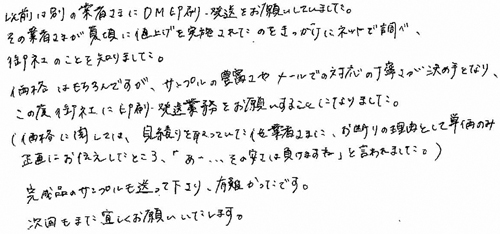 以前は別の業者さまにDM印刷・発送をお願いしていました。
その業者さまが夏頃に値上げを実施されたのをきっかけにネットで調べ、
御社のことを知りました。
価格はもちろんですが、サンプルの豊富さやメールでの対応の丁寧さが決め手となり、
この度御社に印刷・発送業務をお願いすることになりました。
(価格に関しては、見積りを取っていた他業者さまに、お断りの理由として単価のみ
正直にお伝えしたところ、「あー…、その安さは負けますね」と言われました。)
完成品のサンプルも送って下さり、有難かったです。
次回もまた宜しくお願いいたします。